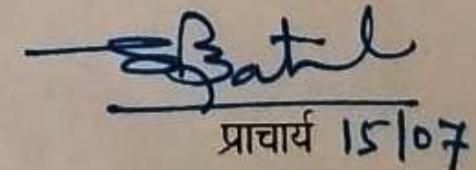 प्राचार्य 15/07